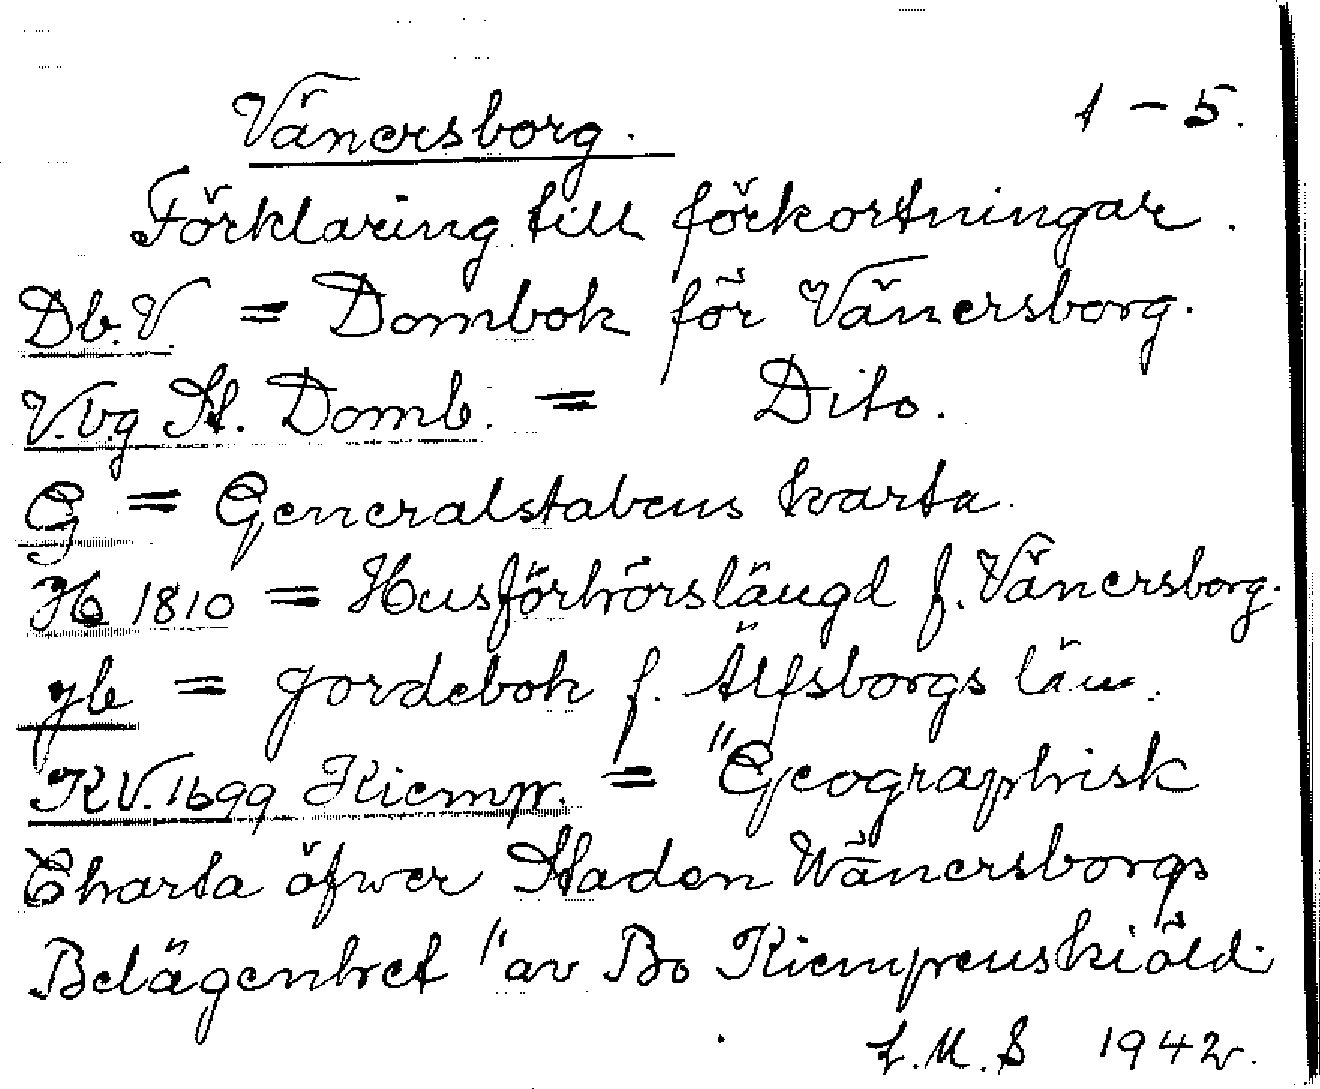 Vänersborg. 1-5.
Förklaring till förkortningar.
Db. V = Dombok för Vänersborg.
V.b.g St. Domb. = Dito.
G = Generalstabens karta.
H 1810 = Husförhörslängd f. Vänersborg.
Jb = Jordebok f. Älfsborgs län.
KV. 1699 Kiempr. = "Geographisk
Charta öfwer Staden Wänersborgs
Belägenhet" av Bo Kiempenskiöld
L.M.S 1942.